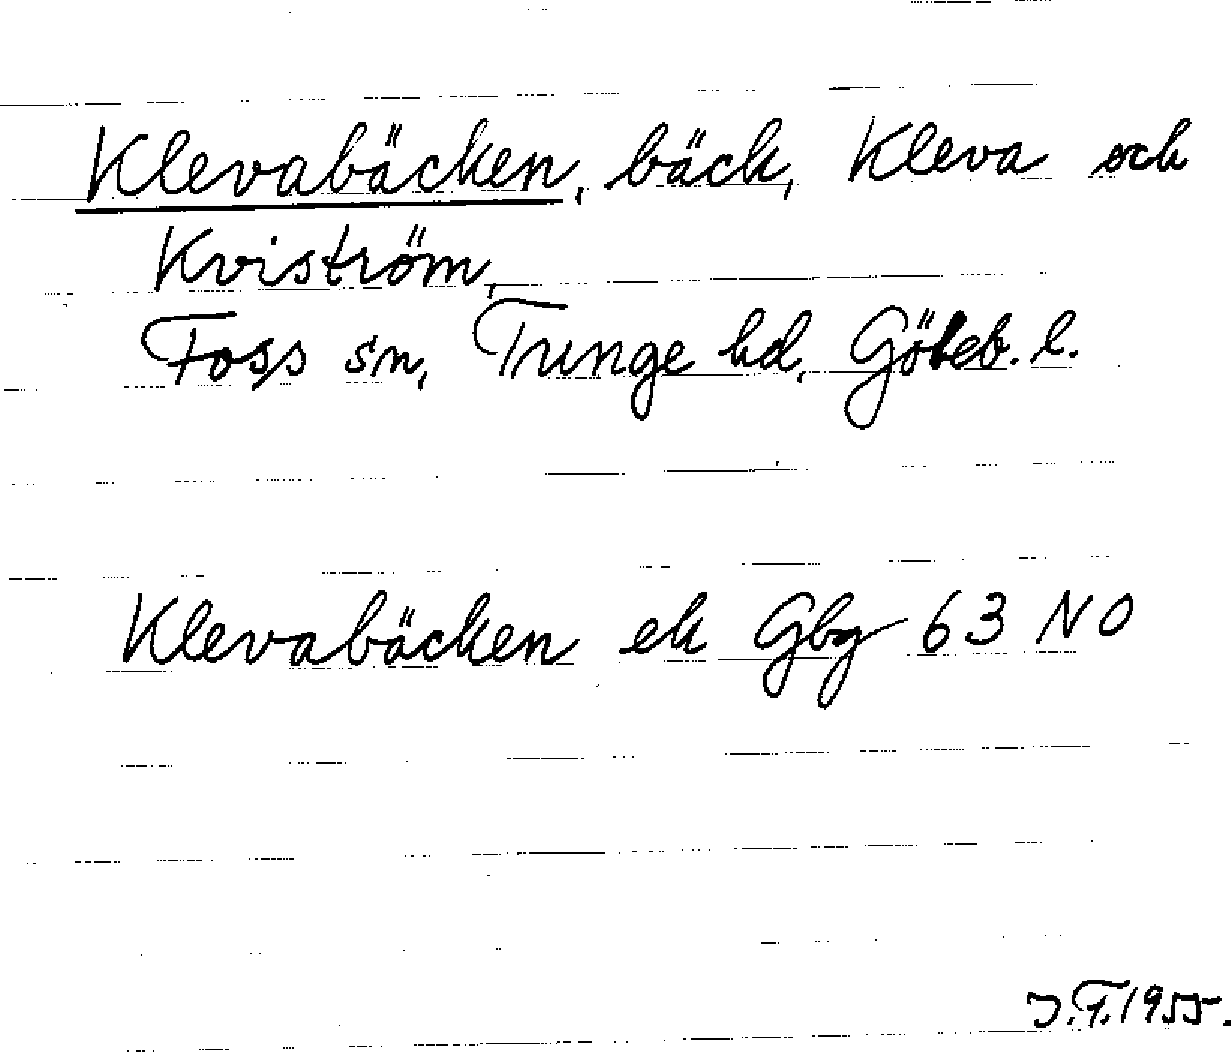 Klevabäcken, bäck, Kleva och
Kviström,
Foss sn, Tunge hd, Göteb. l.
Klevabäcken ek Gbg 63 NO
J.F. 1955.